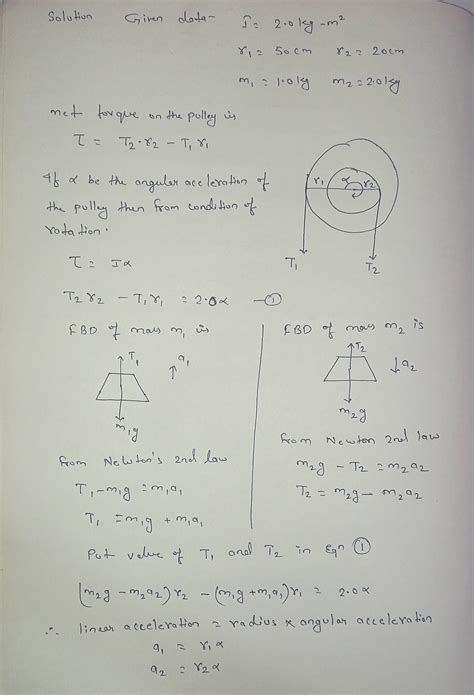 Solution Given data - I = 2.0 kg-m²
r₁ = 50cm r₂ = 20cm
m₁ = 1.0 kg m₂ = 2.0 kg
net torque on the pulley is
τ = T₂·r₂ - T₁r₁
If α be the angular acceleration of
the pulley then from condition of
rotation.
r₁ α r₂
T₁ T₂
τ = Iα
T₂r₂ - T₁r₁ = 2.0α — ①
FBD of mass m₁ is
T₁
a₁
m₁g
from Newton's 2nd law
T₁ - m₁g = m₁a₁
T₁ = m₁g + m₁a₁
FBD of mass m₂ is
T₂
a₂
m₂g
from Newton 2nd law
m₂g - T₂ = m₂a₂
T₂ = m₂g - m₂a₂
Put value of T₁ and T₂ in Eqn ①
(m₂g - m₂a₂)r₂ - (m₁g + m₁a₁)r₁ = 2.0α
∴ linear acceleration = radius × angular acceleration
a₁ = r₁α
a₂ = r₂α